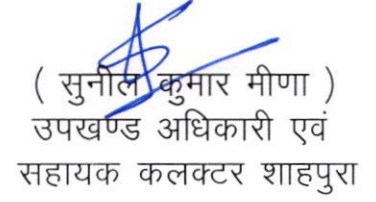 ( सुनील कुमार मीणा )
उपखण्ड अधिकारी एवं
सहायक कलक्टर शाहपुरा